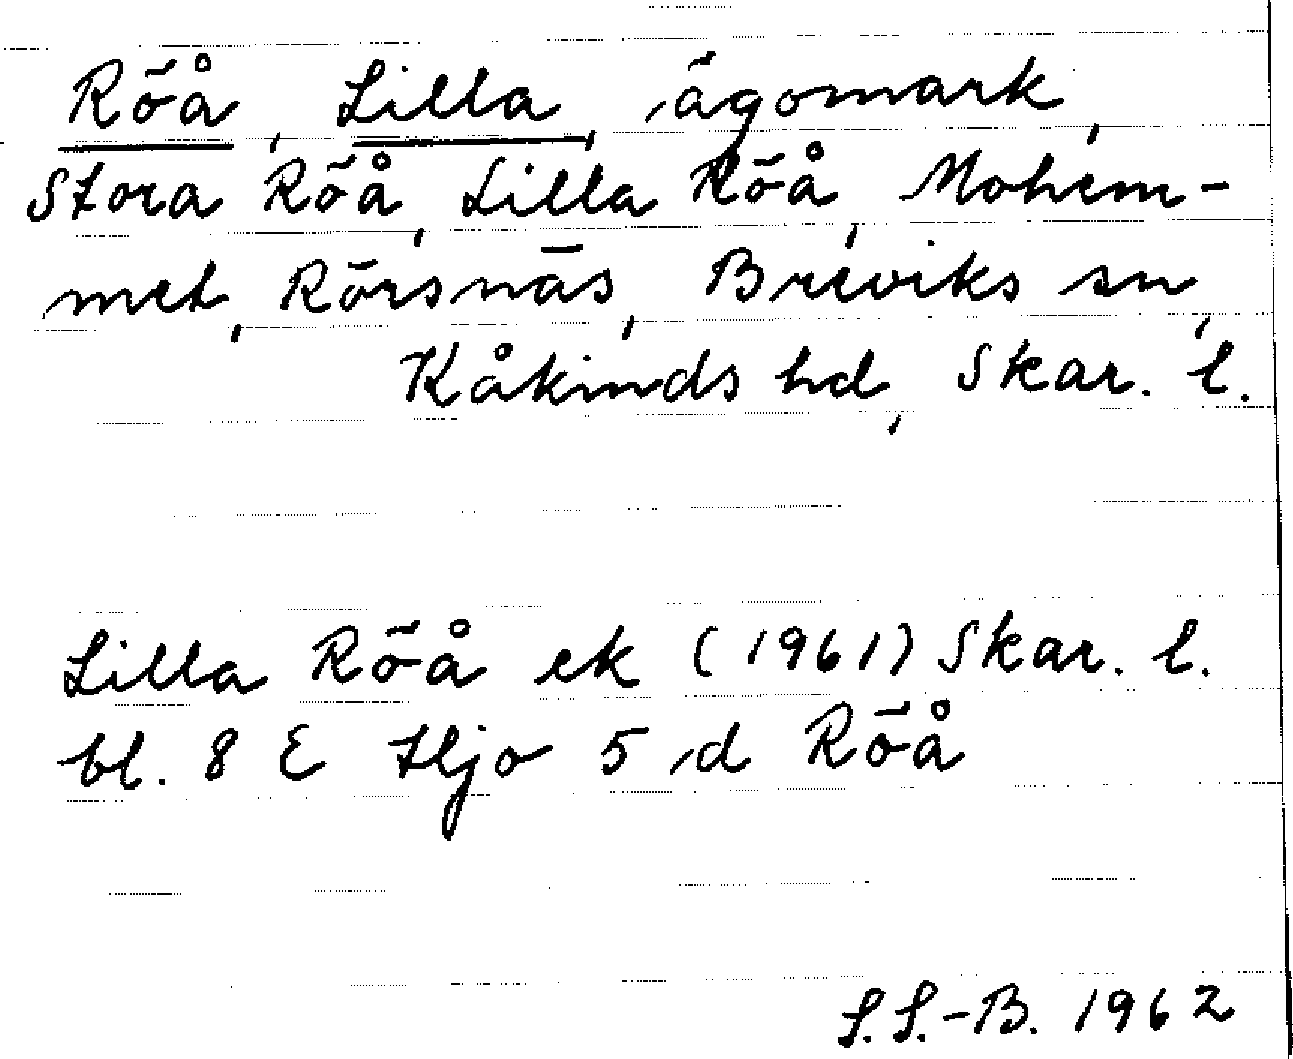 Röå, Lilla, ägomark,
Stora Röå, Lilla Röå, Mohem-
met, Rörsnäs, Breviks sn,
Kåkinds hd, Skar. l.
Lilla Röå ek (1961) Skar. l.
bl. 8 E Hjo 5 d Röå
S.S.-B. 1962